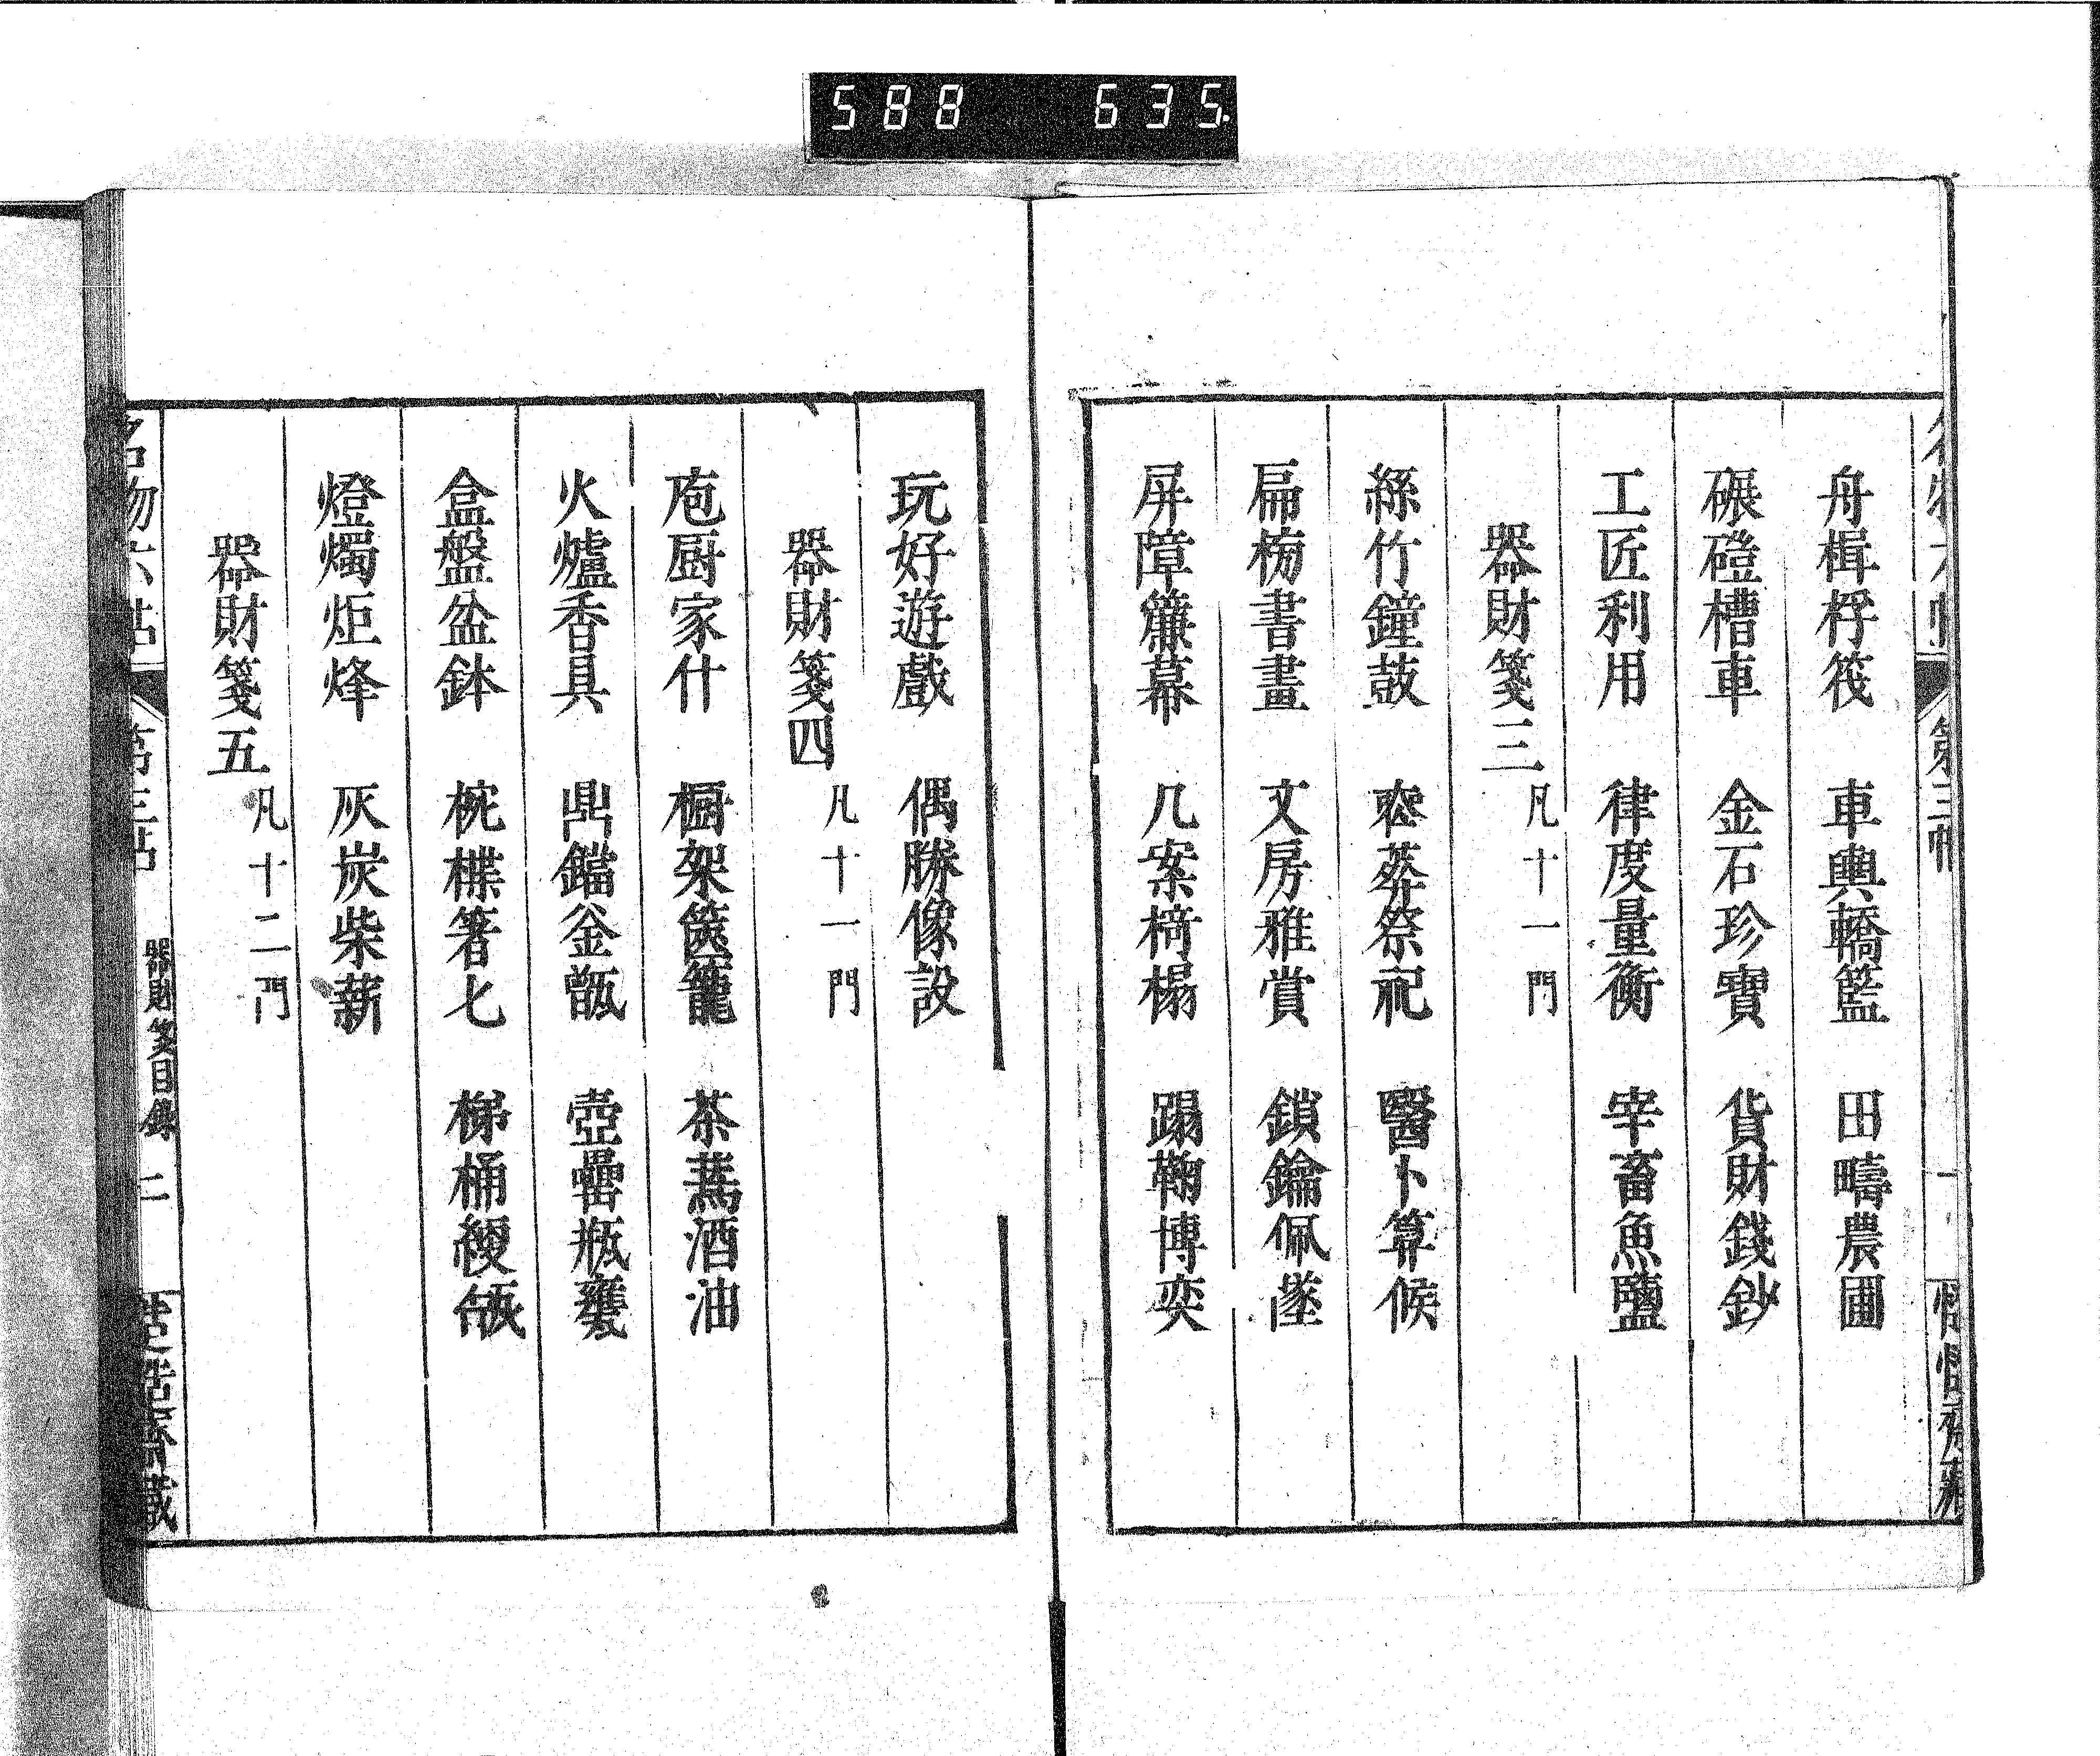 588 635
舟楫桴筏 車輿轎籃 田疇農圃
碾磑槽車 金石珍寶 貨財錢鈔
工匠利用 律度量衡 宰畜魚鹽
器財箋三 凡十一門
絲竹鐘鼓 喪葬祭祀 醫卜算候
扁榜書畫 文房雅賞 鎖鑰佩墜
屏障簾幕 几案椅榻 蹋鞠博奕
玩好遊戲 偶勝像設
器財箋四 凡十一門
庖厨家什 櫥架篋籠 茶蔫酒油
火爐香具 鼎鐺釜甑 壺罍瓶甕
盒盤盆鉢 椀楪箸匕 梯桶綆瓴
燈燭炬烽 灰炭柴薪
器財箋五 凡十二門
名物六帖 第三帖 器財箋目錄 二